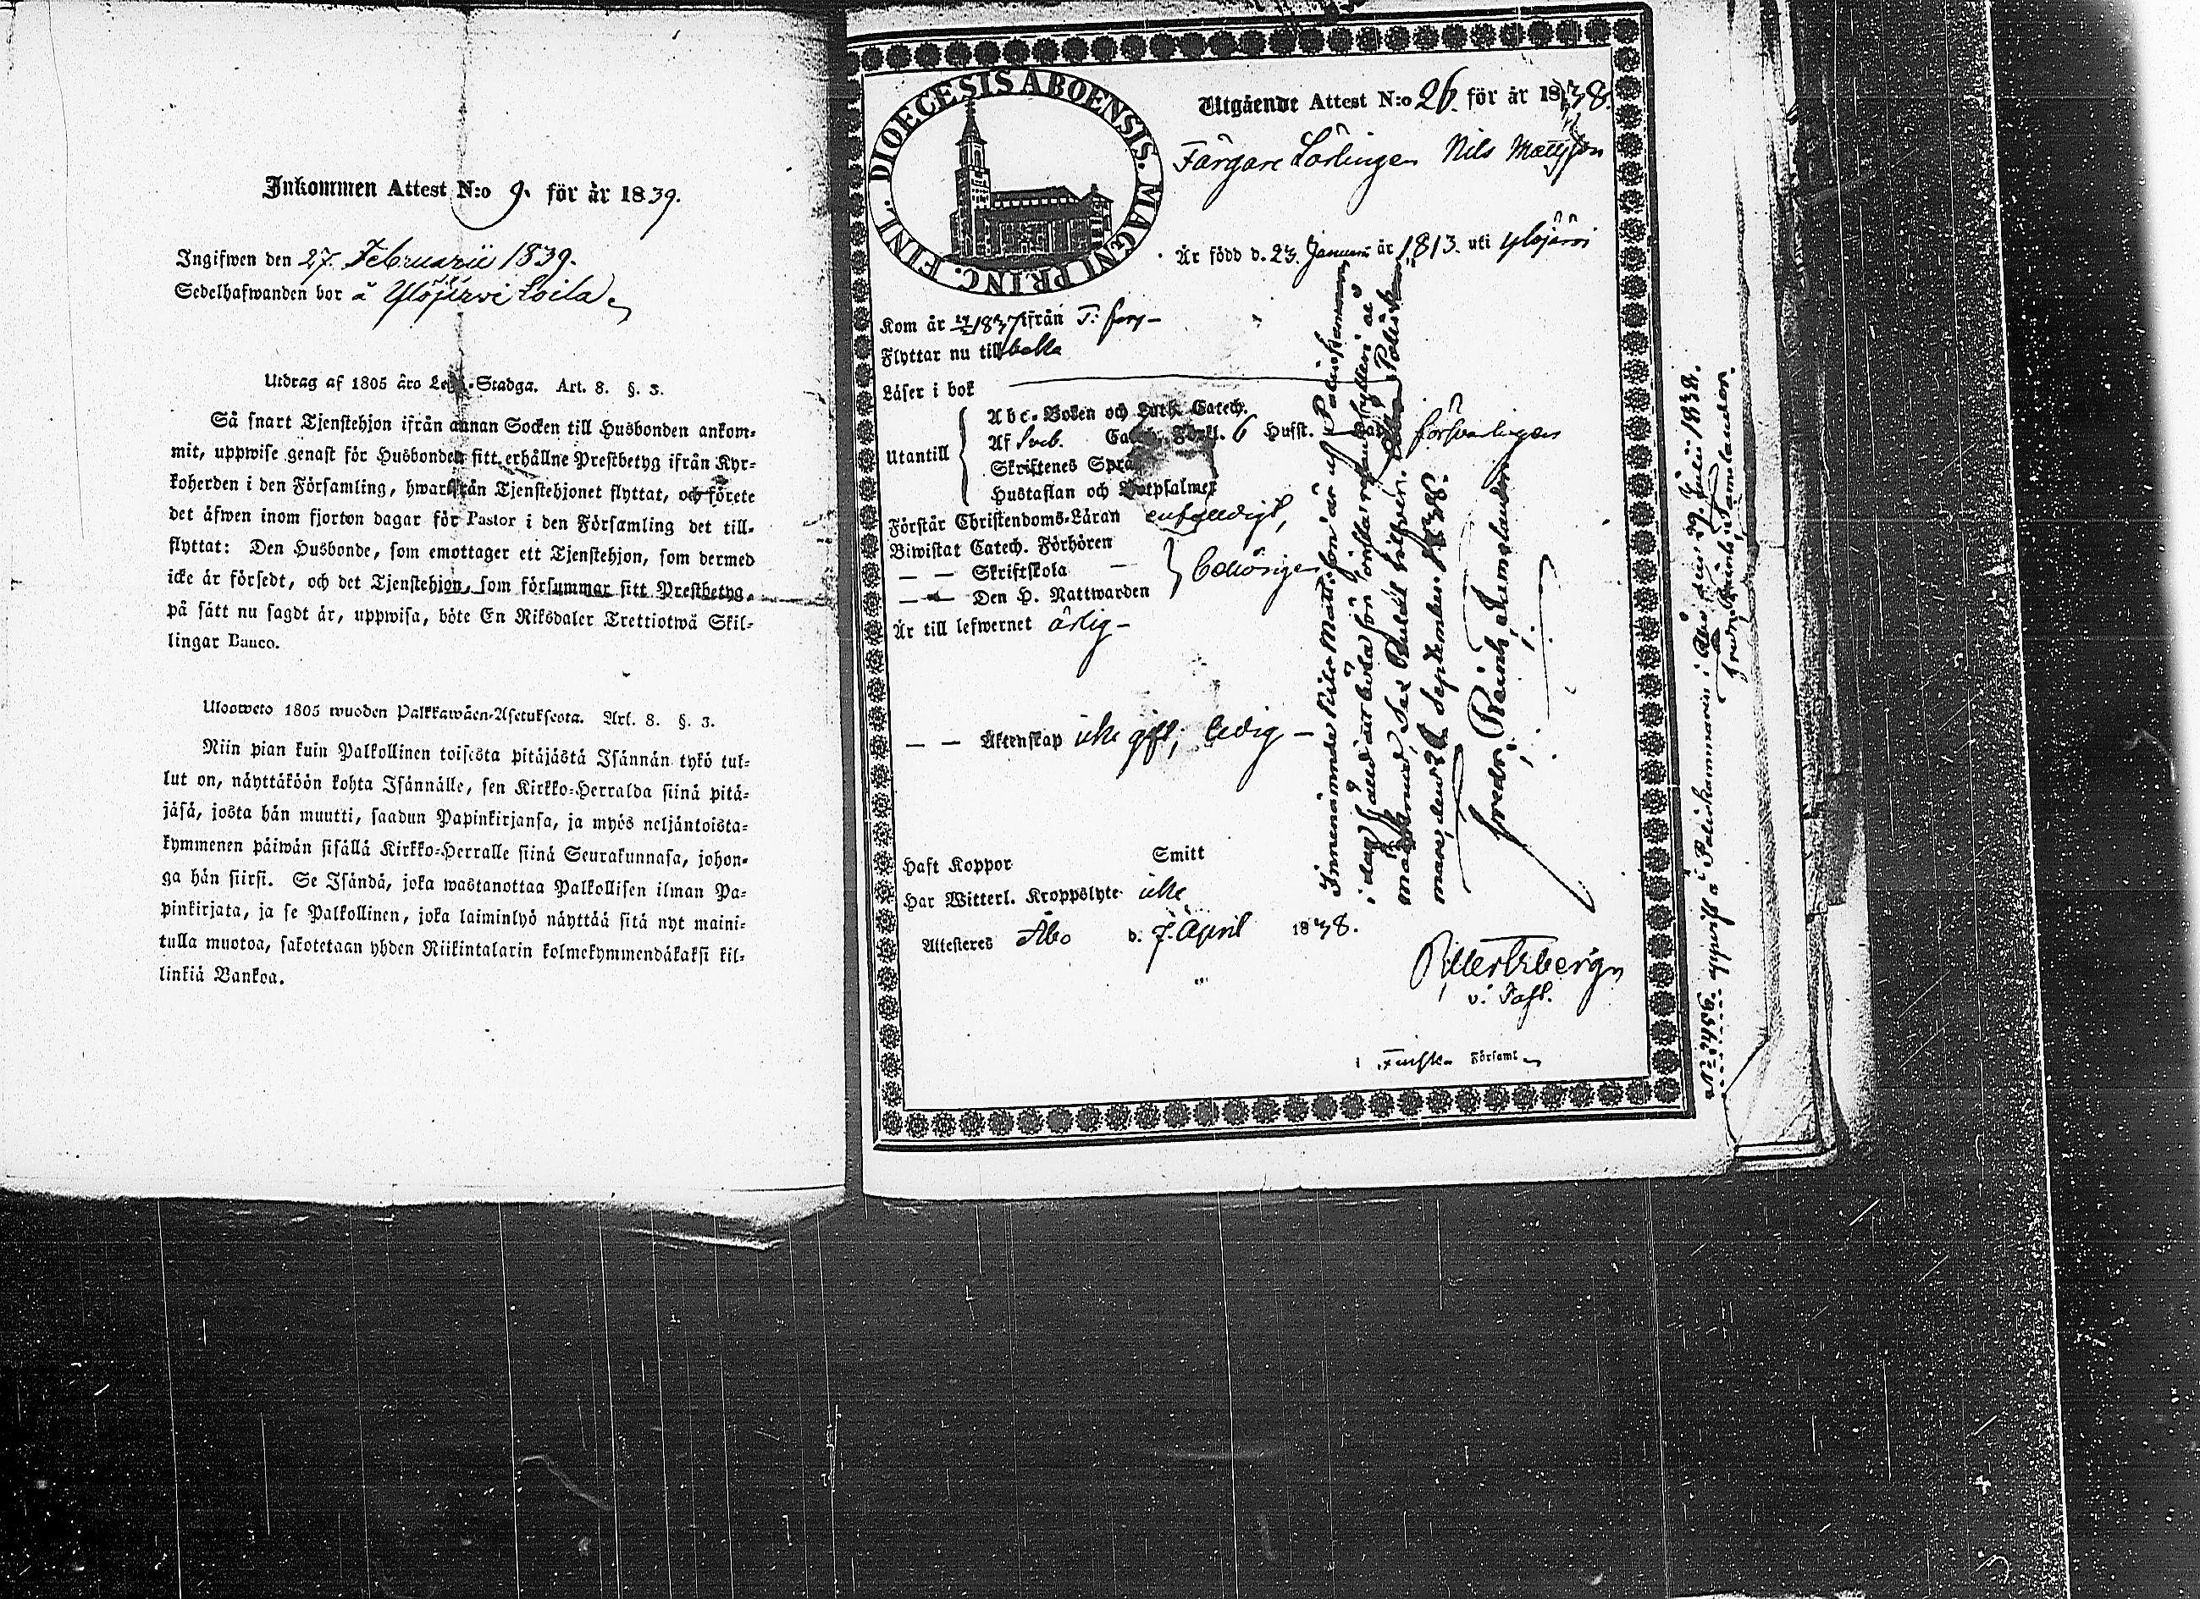 Inkommen Attest N:o 9. för år 1839.
Ingifwen den 27. Februarii 1839.
Sedelhafwanden bor å Ylöjärvi Loila
Utdrag af 1805 års Lego-Stadga. Art. 8. §. 3.
Så snart Tjenstehjon ifrån annan Socken till Husbonden ankom-
mit, uppwise genast för Husbonden sitt erhållne Prestbetyg ifrån Kyr-
koherden i den Församling, hwarifrån Tjenstehjonet flyttat, och förete
det äfwen inom fjorton dagar för Pastor i den Församling det till-
flyttat: Den Husbonde, som emottager ett Tjenstehjon, som dermed
icke är försedt, och det Tjenstehjon, som försummar sitt Prestbetyg,
på sätt nu sagdt är, uppwisa, böte En Riksdaler Trettiotwå Skil-
lingar Banco.
Ulosweto 1805 wuoden Palkkawäen-Asetuksesta. Art. 8. §. 3.
Niin pian kuin Palkollinen toisesta pitäjästä Isännän tykö tul-
lut on, näyttäköön kohta Isännälle, sen Kirkko-Herralda siinä pitä-
jäsä, josta hän muutti, saadun Papinkirjansa, ja myös neljäntoista-
kymmenen päiwän sisällä Kirkko-Herralle siinä Seurakunnasa, johon-
ga hän siirsi. Se Isändä, joka wastanottaa Palkollisen ilman Pa-
pinkirjata, ja se Palkollinen, joka laiminlyö näyttää sitä nyt maini-
tulla muotoa, sakotetaan yhden Riikintalarin kolmekymmendäkaksi kil-
linkiä Bankoa.
DIOECESIS ABOENSIS. MAGNI PRINC. FINL.
Utgående Attest N:o 26. för år 1838.
Färgare Lärlingen Nils Mattsson
Är född d. 23. Januarii år 1813. uti Ylöjärvi
Kom år 1837 ifrån
Flyttar nu till
Läser i bok
Utantill
Abc-Boken och Luth. Catech.
Af Sveb. Catech. Förkl. 6 Hufst. försvarligen
Skriftenes Språk
Hustaflan och Botpsalmer
Förstår Christendoms-Läran enfaldigt,
Biwistat Catech. Förhören
— — Skriftskola —
— — Den H. Nattwarden
behörigen
Är till lefwernet ärlig —
— — Äktenskap icke gift, ledig —
Haft Koppor Smitt
Har Witterl. Kroppslyte icke
Attesteres Åbo d. 7. April 1838.
v. Past.
i Finska Församl
Innenämnde Nils Mattsson är uti Poliskammaren
i dag
mare, den 26 September 1838.
Fredr. Reinh. Tamelander
uppvist å Poliskammaren i Åbo den 27. Julii 1838.
Fredr. Reinh. Tamelander.